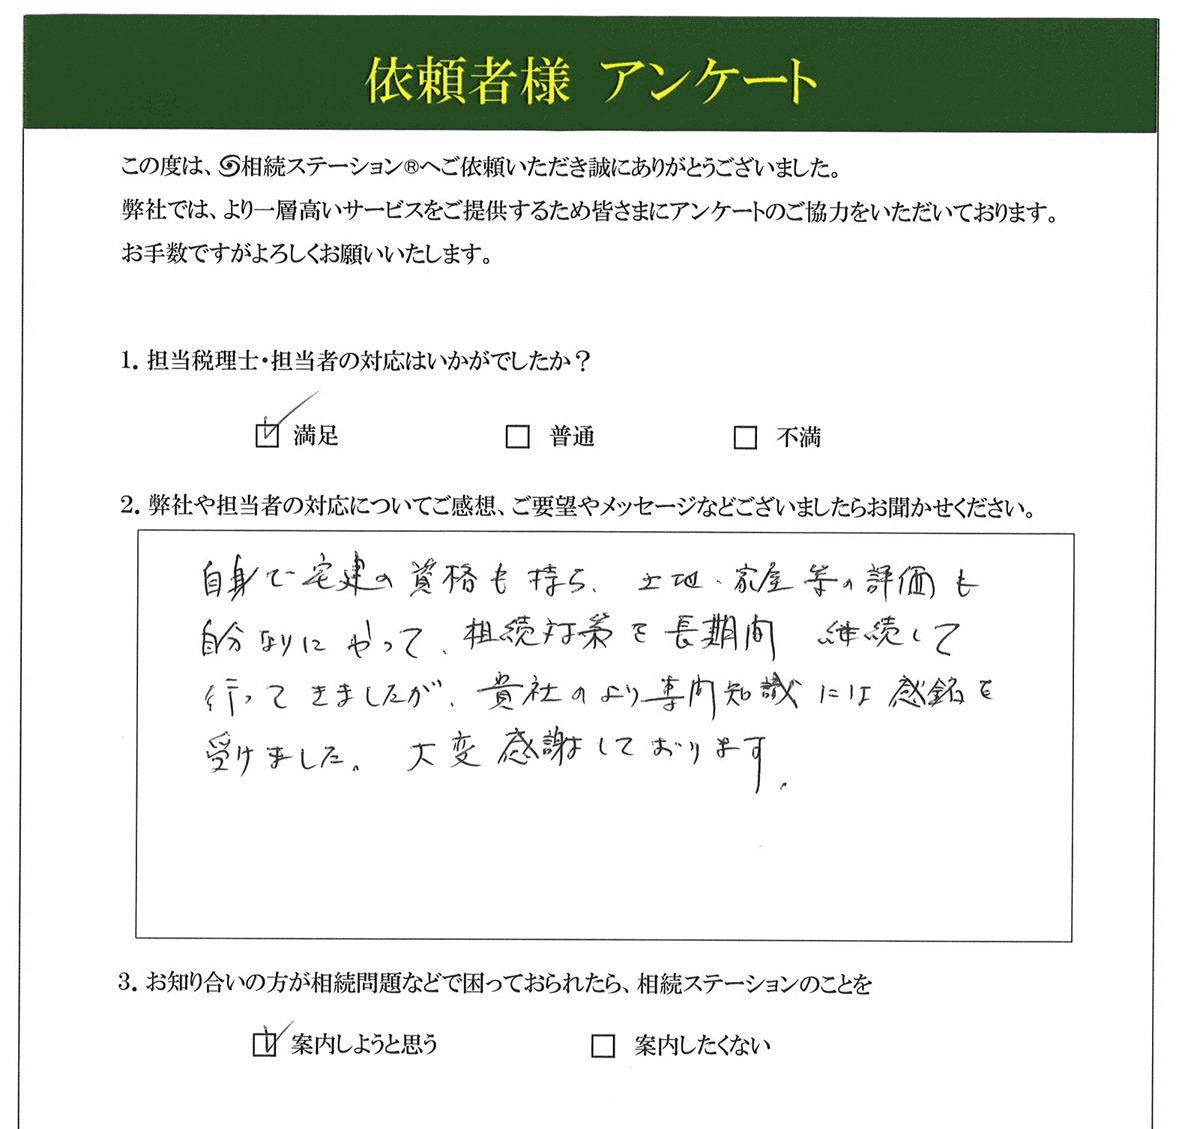 依頼者様 アンケート
この度は、相続ステーション®へご依頼いただき誠にありがとうございました。
弊社では、より一層高いサービスをご提供するため皆さまにアンケートのご協力をいただいております。
お手数ですがよろしくお願いいたします。
1. 担当税理士・担当者の対応はいかがでしたか？
満足 普通 不満
2. 弊社や担当者の対応についてご感想、ご要望やメッセージなどございましたらお聞かせください。
自身で宅建の資格も持ち、土地・家屋等の評価も
自分なりにやって、相続対策を長期間 継続して
行ってきましたが、貴社のより専門知識には感銘を
受けました。大変感謝しております。
3. お知り合いの方が相続問題などで困っておられたら、相続ステーションのことを
案内しようと思う 案内したくない